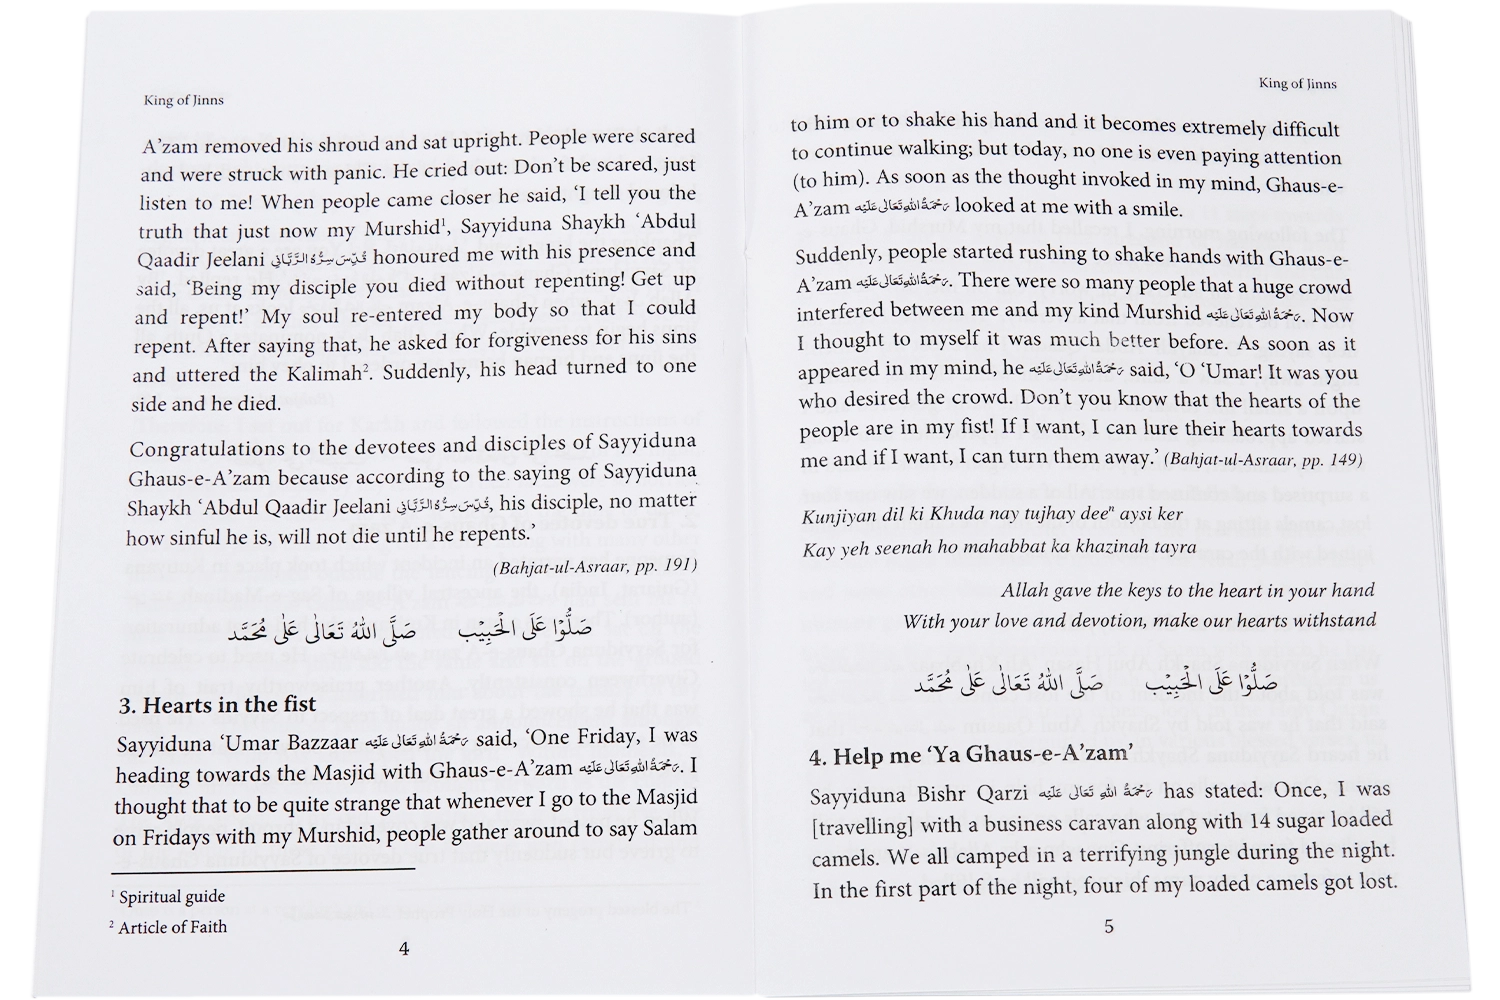 King of Jinns
A’zam removed his shroud and sat upright. People were scared
and were struck with panic. He cried out: Don’t be scared, just
listen to me! When people came closer he said, ‘I tell you the
truth that just now my Murshid¹, Sayyiduna Shaykh ‘Abdul
Qaadir Jeelani قُدِّسَ سِرُّهُ الرَّبَّانِي honoured me with his presence and
said, ‘Being my disciple you died without repenting! Get up
and repent!’ My soul re-entered my body so that I could
repent. After saying that, he asked for forgiveness for his sins
and uttered the Kalimah². Suddenly, his head turned to one
side and he died.
Congratulations to the devotees and disciples of Sayyiduna
Ghaus-e-A’zam because according to the saying of Sayyiduna
Shaykh ‘Abdul Qaadir Jeelani قُدِّسَ سِرُّهُ الرَّبَّانِي, his disciple, no matter
how sinful he is, will not die until he repents.’
(Bahjat-ul-Asraar, pp. 191)
صَلُّوْا عَلَى الْحَبِيْب صَلَّى اللهُ تَعَالٰى عَلٰى مُحَمَّد
3. Hearts in the fist
Sayyiduna ‘Umar Bazzaar رَحْمَةُ اللهِ تَعَالٰى عَلَيْه said, ‘One Friday, I was
heading towards the Masjid with Ghaus-e-A’zam رَحْمَةُ اللهِ تَعَالٰى عَلَيْه. I
thought that to be quite strange that whenever I go to the Masjid
on Fridays with my Murshid, people gather around to say Salam
¹ Spiritual guide
² Article of Faith
4
King of Jinns
to him or to shake his hand and it becomes extremely difficult
to continue walking; but today, no one is even paying attention
(to him). As soon as the thought invoked in my mind, Ghaus-e-
A’zam رَحْمَةُ اللهِ تَعَالٰى عَلَيْه looked at me with a smile.
Suddenly, people started rushing to shake hands with Ghaus-e-
A’zam رَحْمَةُ اللهِ تَعَالٰى عَلَيْه. There were so many people that a huge crowd
interfered between me and my kind Murshid رَحْمَةُ اللهِ تَعَالٰى عَلَيْه. Now
I thought to myself it was much better before. As soon as it
appeared in my mind, he رَحْمَةُ اللهِ تَعَالٰى عَلَيْه said, ‘O ‘Umar! It was you
who desired the crowd. Don’t you know that the hearts of the
people are in my fist! If I want, I can lure their hearts towards
me and if I want, I can turn them away.’ (Bahjat-ul-Asraar, pp. 149)
Kunjiyan dil ki Khuda nay tujhay deeⁿ aysi ker
Kay yeh seenah ho mahabbat ka khazinah tayra
Allah gave the keys to the heart in your hand
With your love and devotion, make our hearts withstand
صَلُّوْا عَلَى الْحَبِيْب صَلَّى اللهُ تَعَالٰى عَلٰى مُحَمَّد
4. Help me ‘Ya Ghaus-e-A’zam’
Sayyiduna Bishr Qarzi رَحْمَةُ اللهِ تَعَالٰى عَلَيْه has stated: Once, I was
[travelling] with a business caravan along with 14 sugar loaded
camels. We all camped in a terrifying jungle during the night.
In the first part of the night, four of my loaded camels got lost.
5